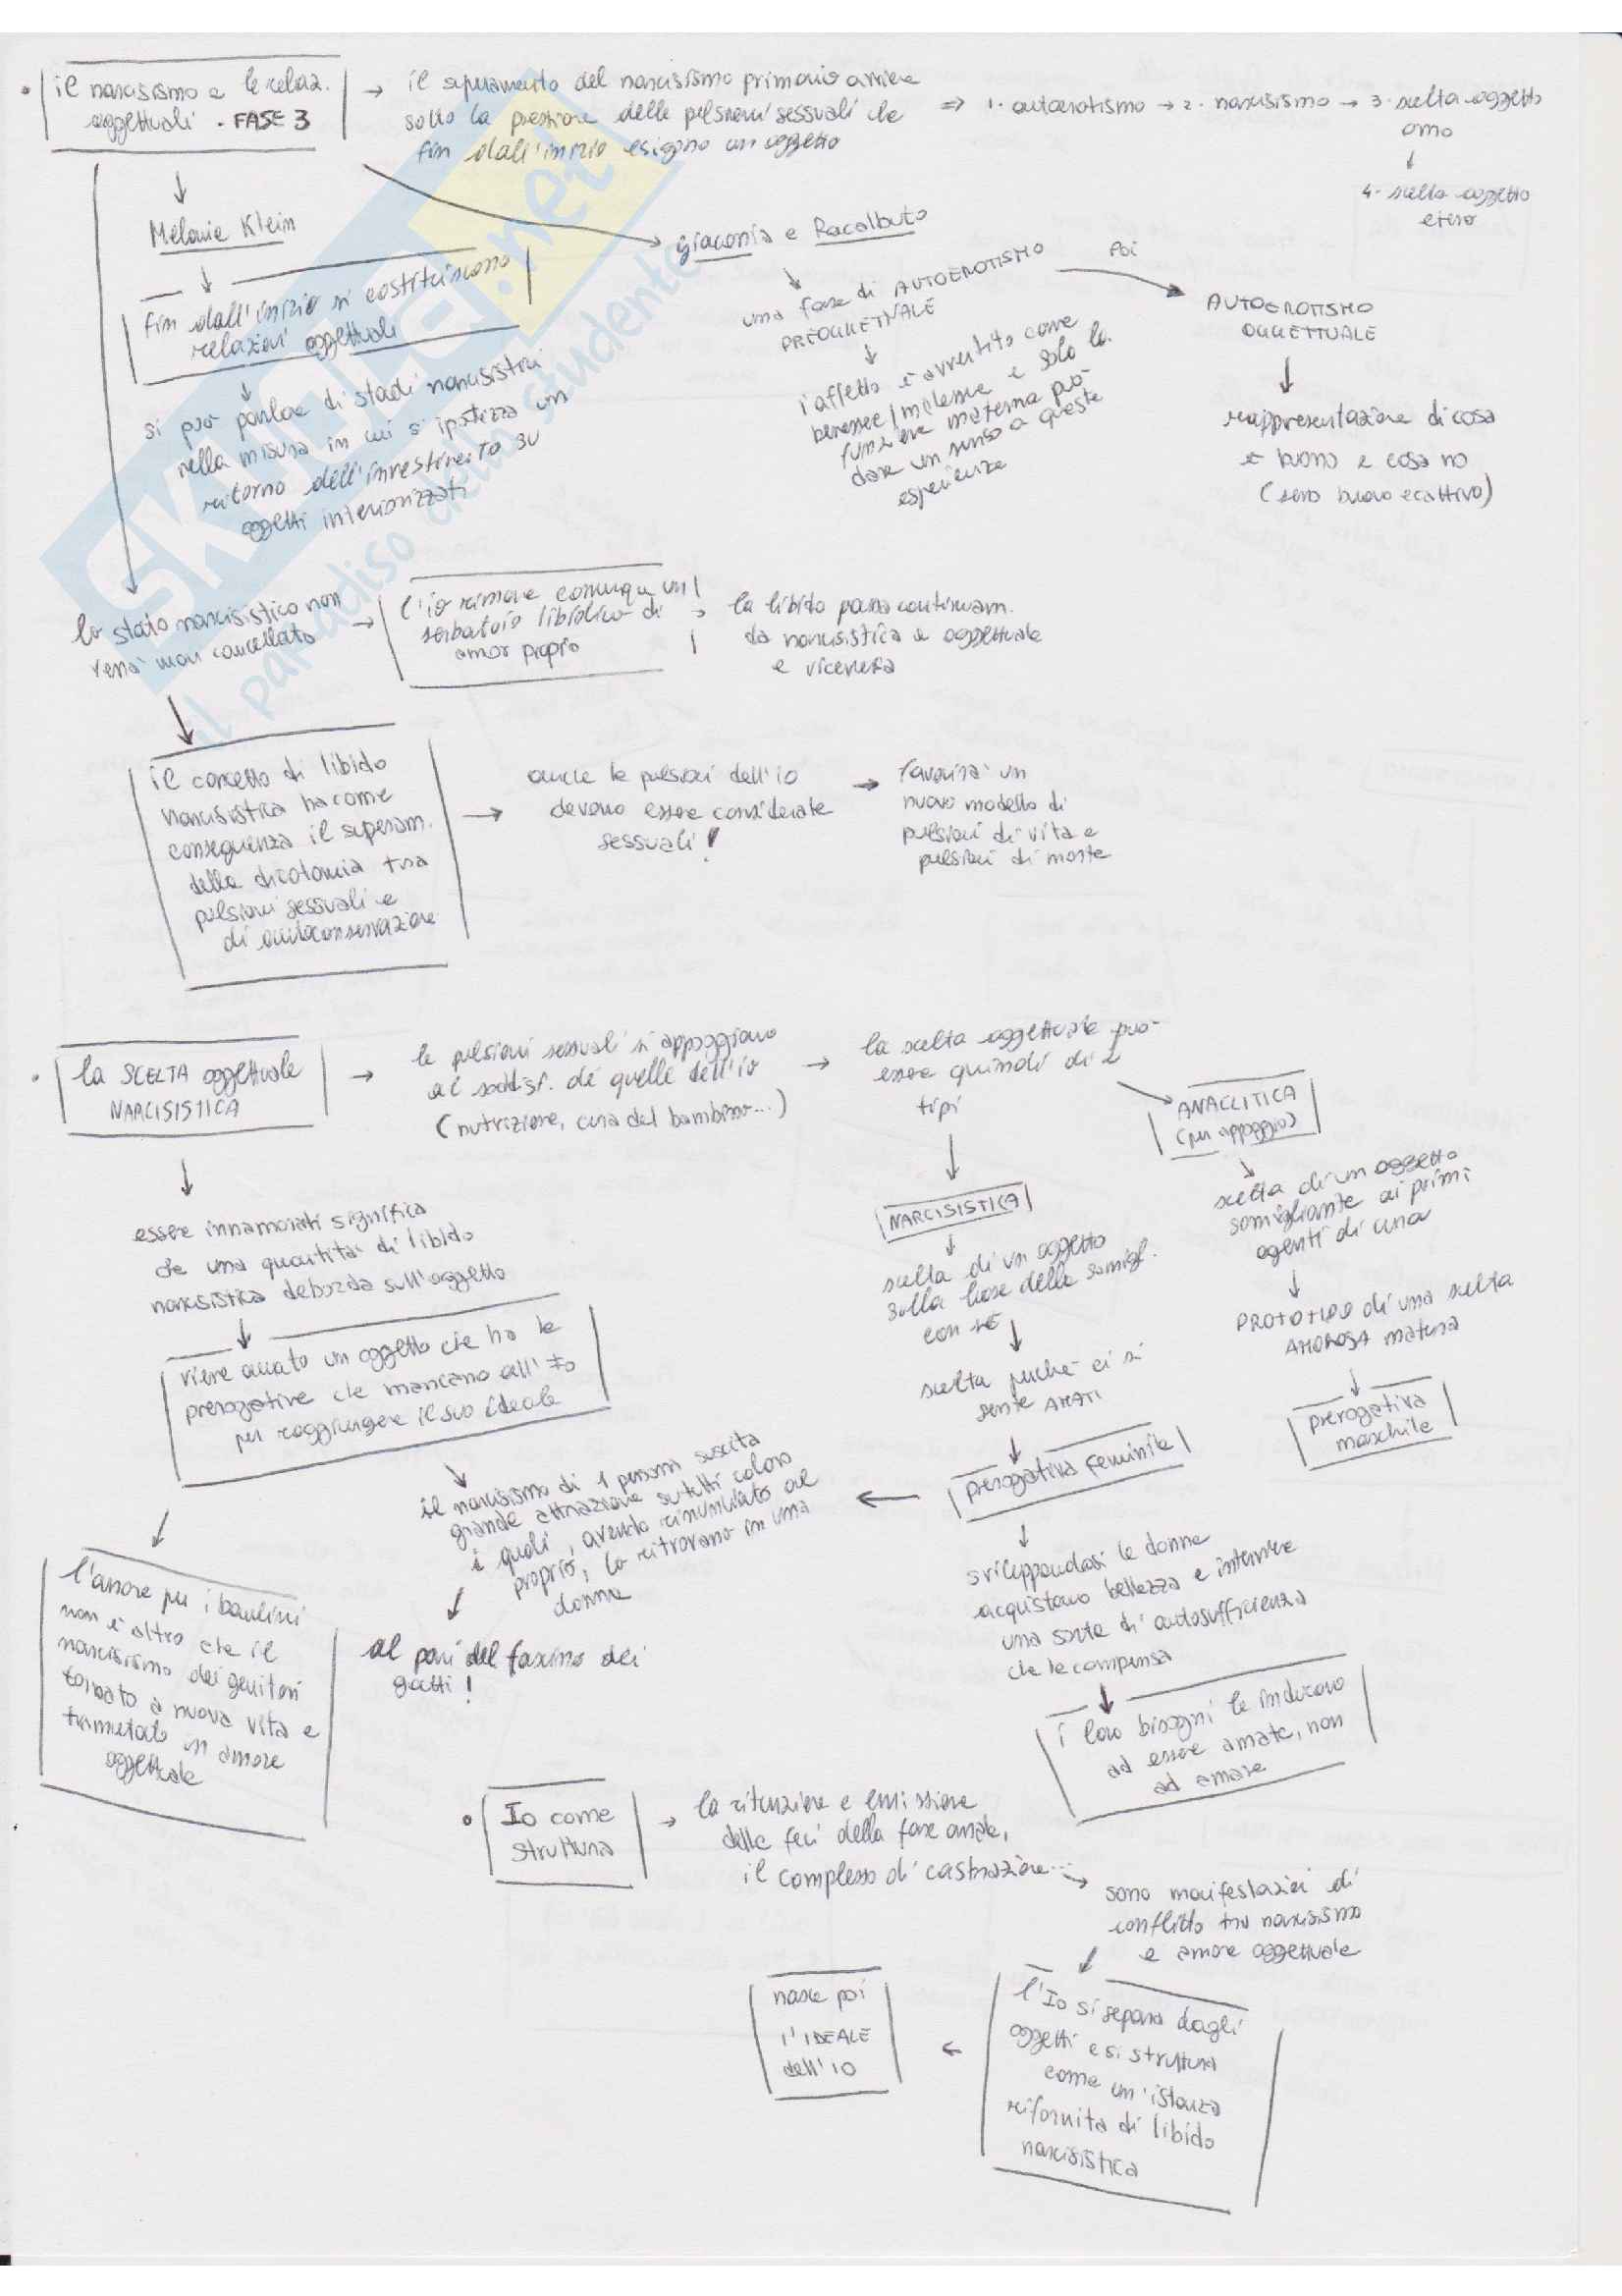 • il narcisismo e le relaz.
oggettuali. FASE 3
→ il superamento del narcisismo primario avviene
sotto la pressione delle pulsioni sessuali che
fin dall'inizio esigono un oggetto
⇒ 1. autoerotismo → 2. narcisismo → 3. scelta oggetto
omo
↓
4. scelta oggetto
etero
Melanie Klein
fin dall'inizio si costituiscono
relazioni oggettuali
si può parlare di stadi narcisistici
nella misura in cui si ipotizza un
ritorno dell'investimento su
oggetti interiorizzati
Giaconia e Racalbuto
una fase di AUTOEROTISMO
PREOGGETTUALE
l'affetto è avvertito come
benessere/malessere e solo la
funzione materna può
dare un senso a queste
esperienze
poi
AUTOEROTISMO
OGGETTUALE
rappresentazione di cosa
è buono e cosa no
(seno buono e cattivo)
lo stato narcisistico non
verrà mai cancellato
→ l'io rimane comunque un
serbatoio libidico di
amor proprio
→ la libido passa continuam.
da narcisistica a oggettuale
e viceversa
il concetto di libido
narcisistica ha come
conseguenza il superam.
della dicotomia tra
pulsioni sessuali e
di autoconservazione
→ anche le pulsioni dell'io
devono essere considerate
sessuali!
→ favorirà un
nuovo modello di
pulsioni di vita e
pulsioni di morte
• la SCELTA oggettuale
NARCISISTICA
→ le pulsioni sessuali si appoggiano
al soddisf. di quelle dell'io
(nutrizione, cura del bambino...)
→ la scelta oggettuale può
essere quindi di 2
tipi
ANACLITICA
(per appoggio)
scelta di un oggetto
somigliante ai primi
agenti di cura
PROTOTIPO di una scelta
AMOROSA matura
prerogativa
maschile
NARCISISTICA
scelta di un oggetto
sulla base della somigl.
con sé
scelta perché ci si
sente AMATI
prerogativa femminile
sviluppandosi le donne
acquistano bellezza e interviene
una sorta di autosufficienza
che le compensa
i loro bisogni le inducono
ad essere amate, non
ad amare
essere innamorati significa
che una quantità di libido
narcisistica deborda sull'oggetto
viene amato un oggetto che ha le
prerogative che mancano all'Io
per raggiungere il suo ideale
il narcisismo di 1 persona suscita
grande attrazione su tutti coloro
i quali, avendo rinunciato al
proprio, lo ritrovano in una
donna
al pari del fascino dei
gatti!
l'amore per i bambini
non è altro che il
narcisismo dei genitori
tornato a nuova vita e
tramutato in amore
oggettuale
• Io come
struttura
→ la ritenzione e emissione
delle feci della fase anale,
il complesso di castrazione...
sono manifestazioni di
conflitto tra narcisismo
e amore oggettuale
l'Io si separa dagli
oggetti e si struttura
come un'istanza
rifornita di libido
narcisistica
nasce poi
l'IDEALE
dell'IO
SKUOLA.net
il paradiso dello studente